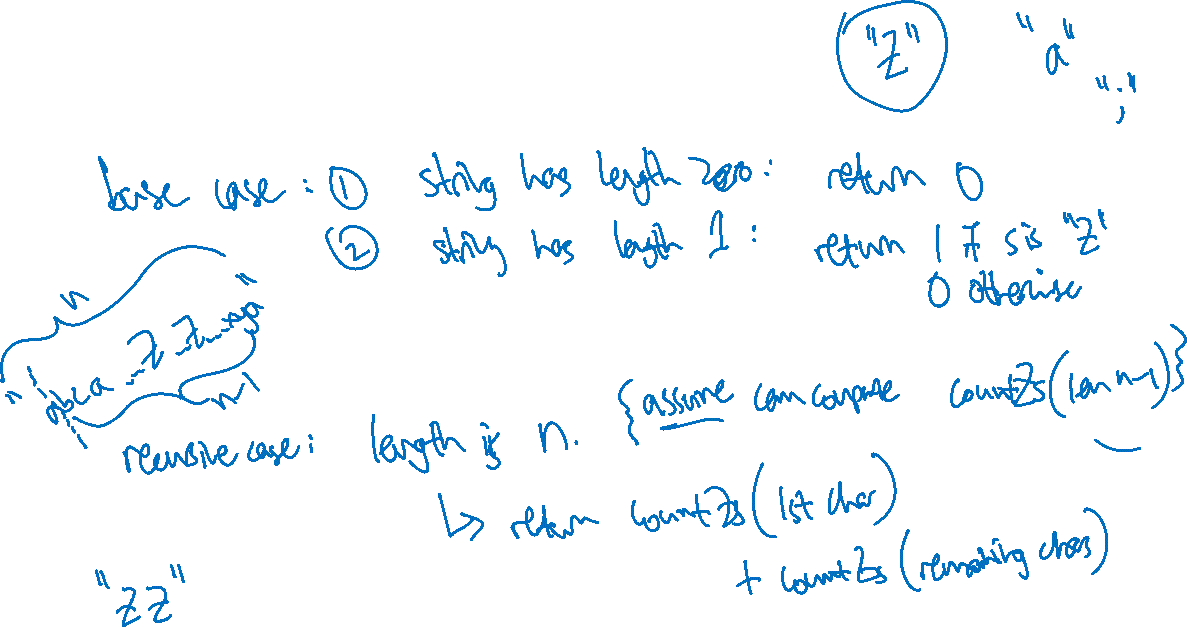 "Z" "a" ";"
base case: ① string has length zero: return 0
② string has length 1: return 1 if s is "Z"
0 otherwise
n
"abca...Z..Z...ya"
n-1
recursive case: length is n. {assume can compute countZs(len n-1)}
↳ return countZs(1st char)
+ countZs(remaining chars)
"ZZ"